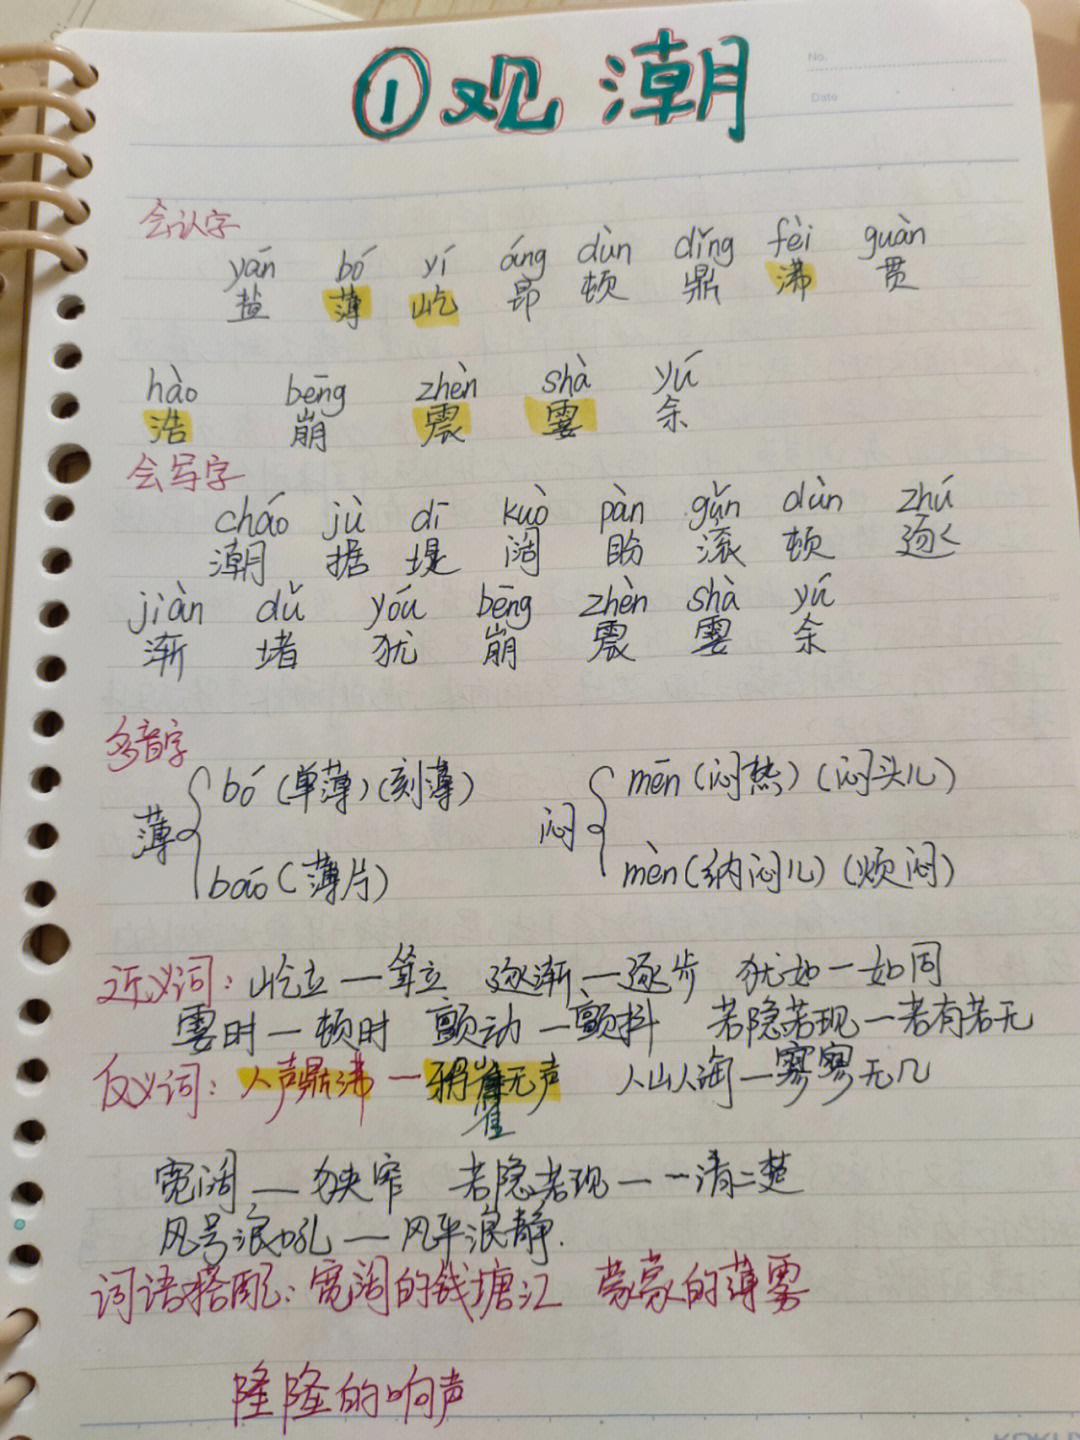 ①观潮
No.
Date
会认字
yán bó yí áng dùn dǐng fèi guàn
盐 薄 屹 昂 顿 鼎 沸 贯
hào bēng zhèn shà yú
浩 崩 震 霎 余
会写字
cháo jù dī kuò pàn gǔn dùn zhú
潮 据 堤 阔 盼 滚 顿 逐
jiàn dǔ yóu bēng zhèn shà yú
渐 堵 犹 崩 震 霎 余
多音字
薄 bó (单薄) (刻薄) 闷 mēn (闷热) (闷头儿)
báo (薄片) mèn (纳闷儿) (烦闷)
近义词: 屹立—耸立 逐渐—逐步 犹如—如同
霎时—顿时 颤动—颤抖 若隐若现—若有若无
反义词: 人声鼎沸—鸦雀无声 人山人海—寥寥无几
宽阔—狭窄 若隐若现—一清二楚
风号浪吼—风平浪静.
词语搭配: 宽阔的钱塘江 蒙蒙的薄雾
隆隆的响声